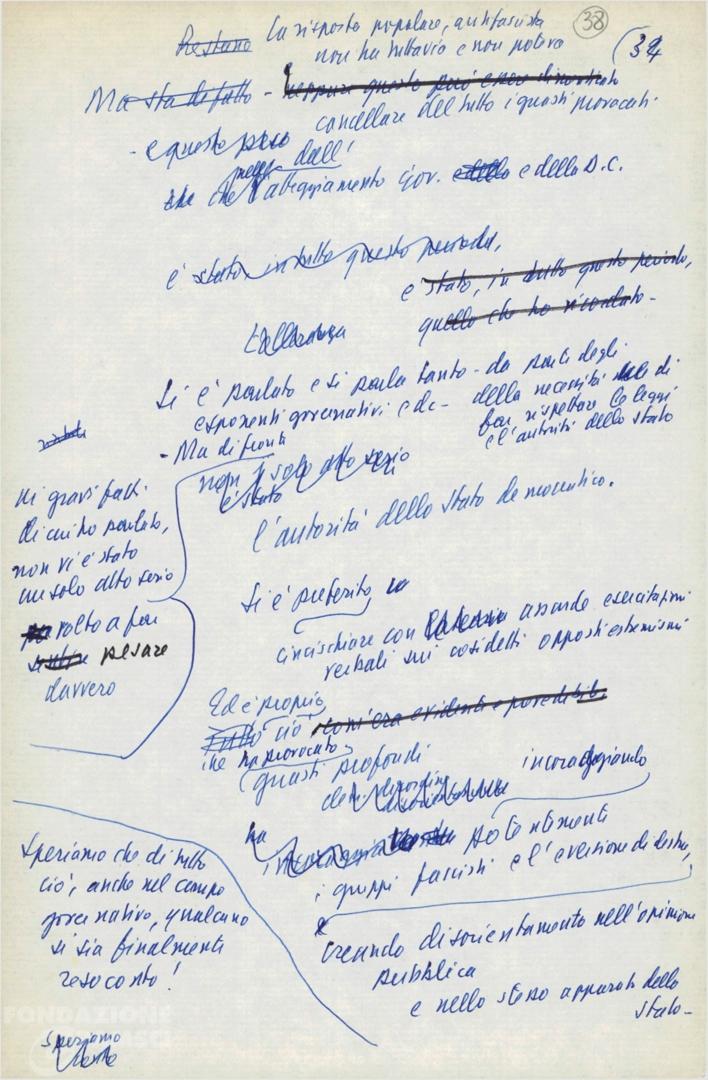 38
34
Restano La risposta popolare, antifascista
non ha tuttavia e non poteva
Ma sta di fatto - neppure questo può esser dimenticato
cancellare del tutto i guasti provocati
- e questo pesa
dall'
che l'atteggiamento gov. e della D.C.
è stato in tutto questo periodo,
è stato, in tutto questo periodo,
quello che ho ricordato -
Si è parlato e si parla tanto - da parte degli
esponenti governativi e dc - della necessità di
far rispettare le leggi
e l'autorità dello Stato
- Ma di fronte
ai gravi fatti
di cui ho parlato,
non vi è stato
un solo atto serio
volto a far
pesare
davvero
non è stato
un solo atto serio
l'autorità dello Stato democratico.
Si è preferito
cincischiare con assurde esercitazioni
verbali sui cosidetti opposti estremismi
Ed è proprio
Tutto ciò com'era evidente e prevedibile
che ha provocato
guasti profondi
incoraggiando
ha
potentemente
i gruppi fascisti e l'eversione di destra,
e
creando disorientamento nell'opinione
pubblica
e nello stesso apparato dello
Stato -
Speriamo che di tutto
ciò, anche nel campo
governativo, qualcuno
si sia finalmente
reso conto!
Speriamo
FONDAZIONE